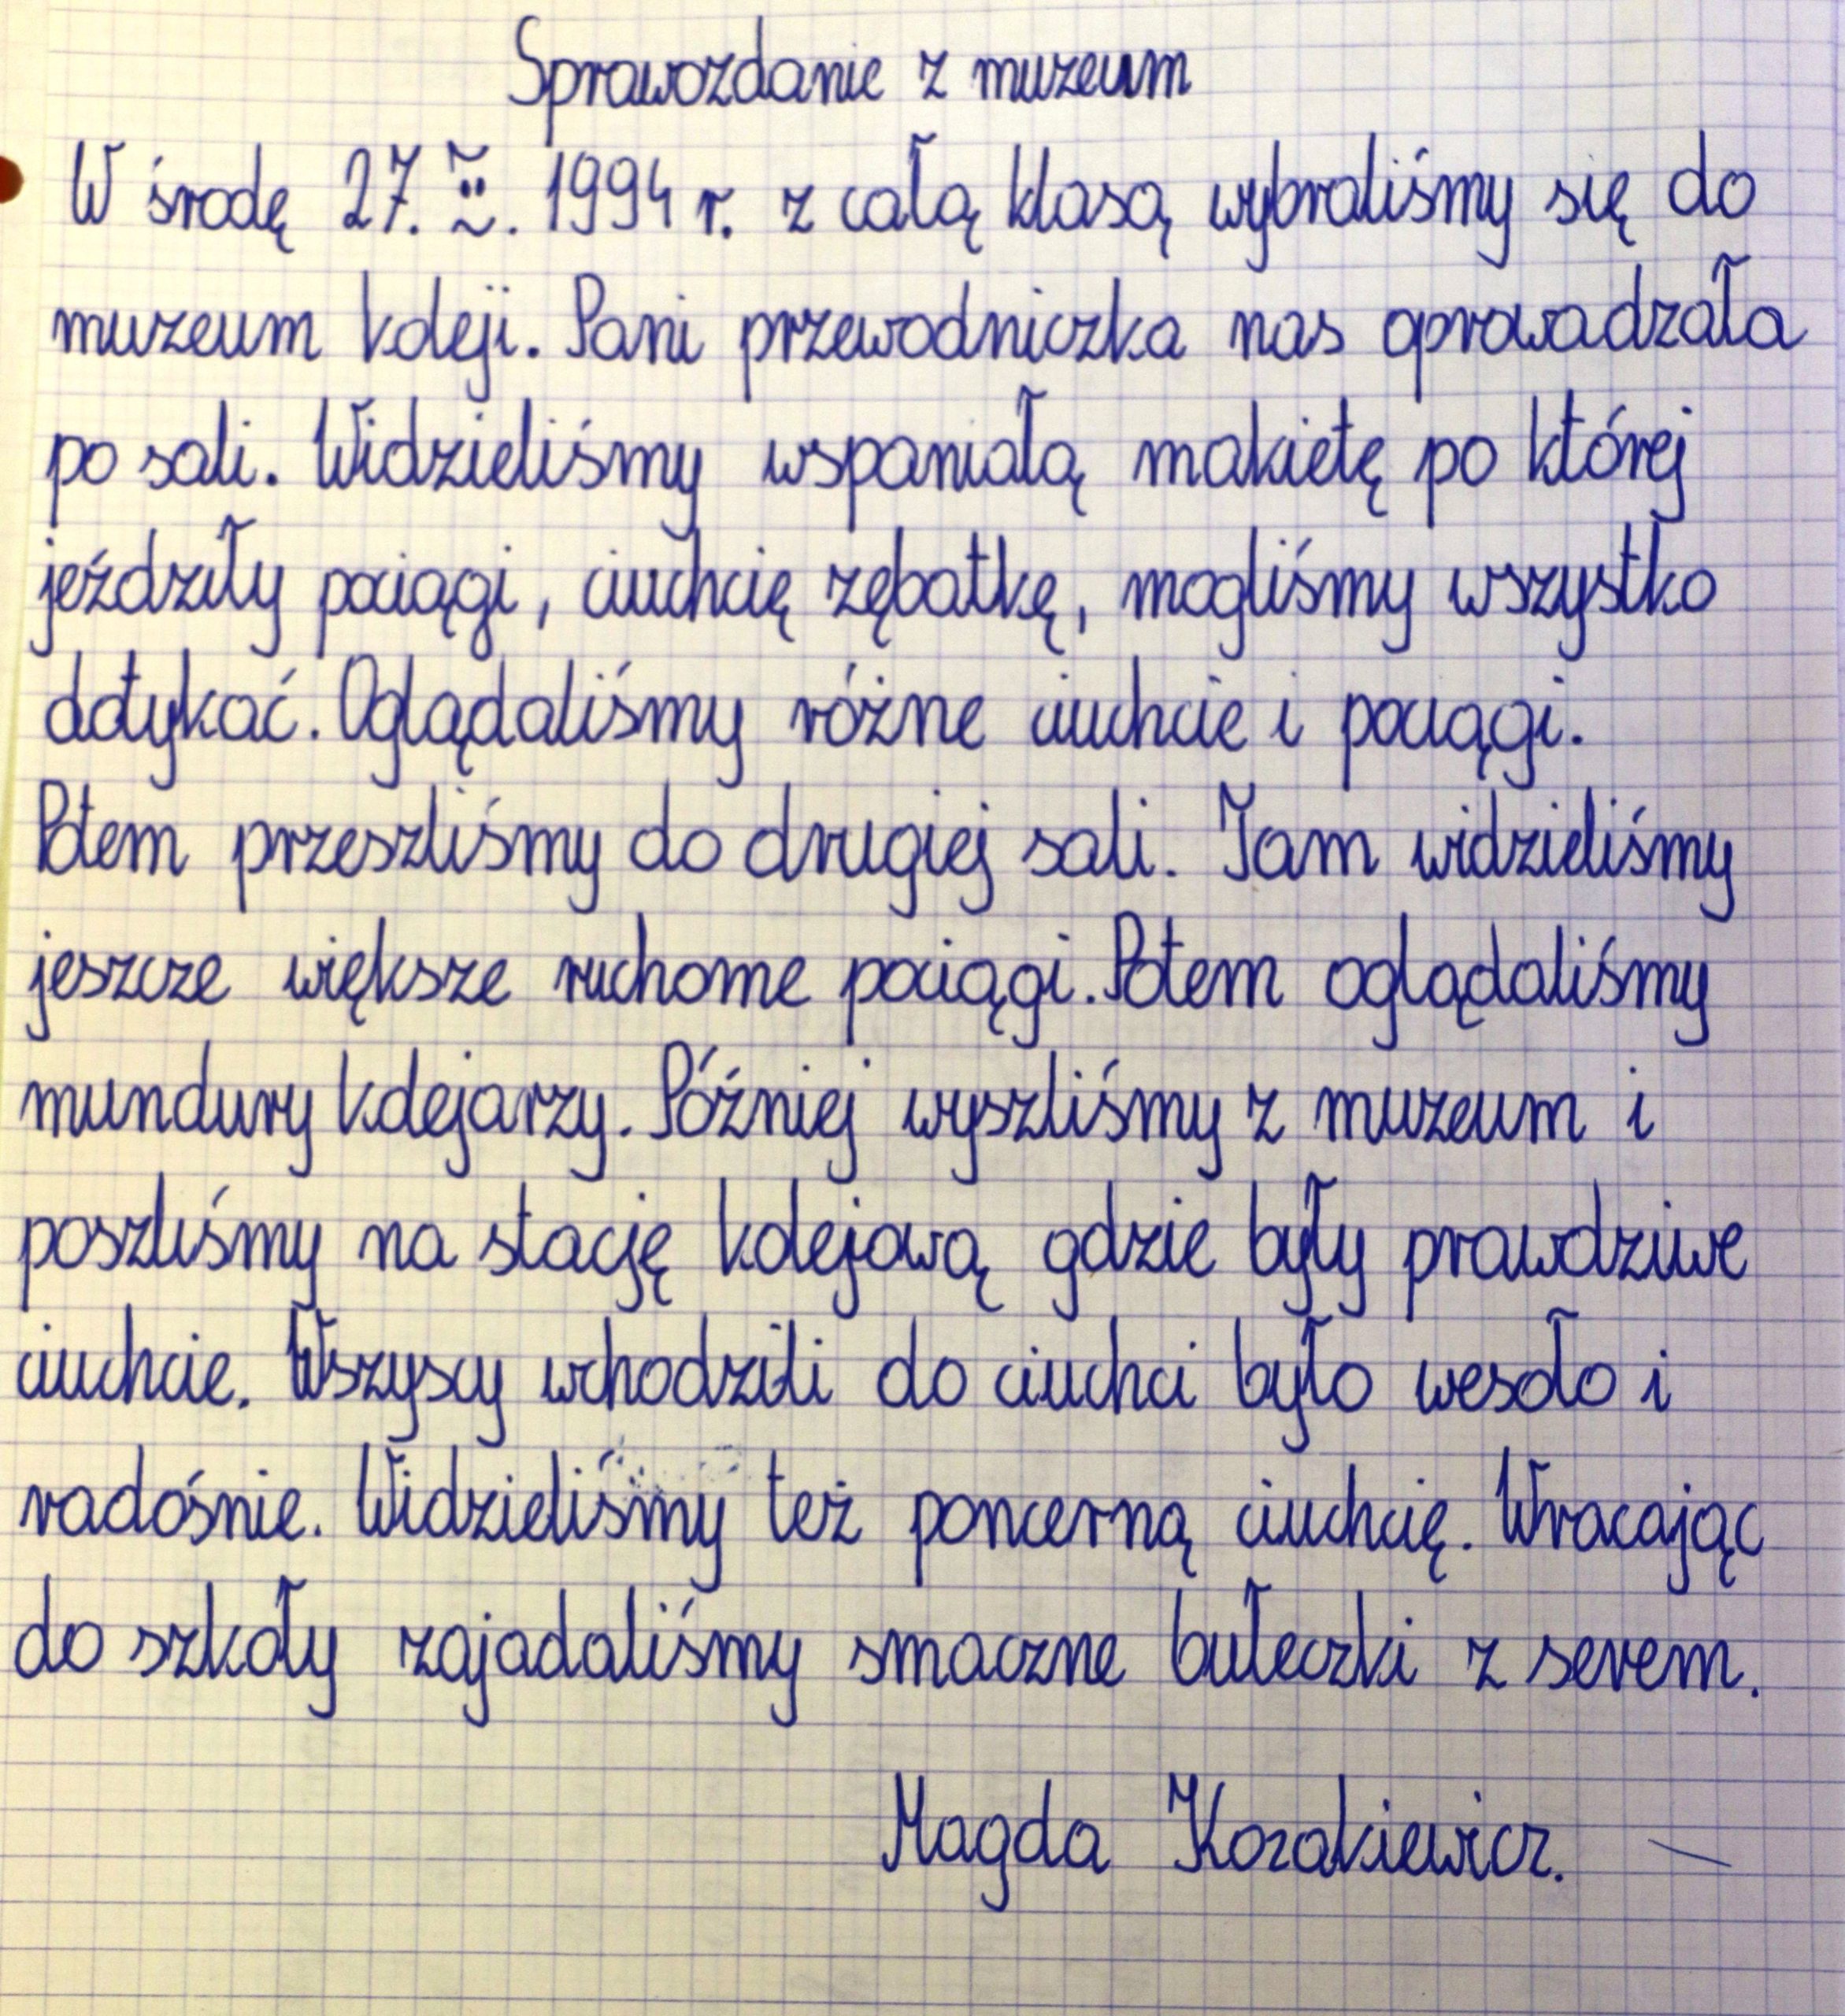 Sprawozdanie z muzeum
W środę 27. IV. 1994 r. z całą klasą wybraliśmy się do
muzeum koleji. Pani przewodniczka nas oprowadzała
po sali. Widzieliśmy wspaniałą makietę po której
jeździły pociągi, ciuchcię zębatkę, mogliśmy wszystko
dotykać. Oglądaliśmy różne ciuchcie i pociągi.
Potem przeszliśmy do drugiej sali. Tam widzieliśmy
jeszcze większe ruchome pociągi. Potem oglądaliśmy
mundury kolejarzy. Później wyszliśmy z muzeum i
poszliśmy na stację kolejową gdzie były prawdziwe
ciuchcie. Wszyscy wchodzili do ciuchci było wesoło i
radośnie. Widzieliśmy też pancerną ciuchcię. Wracając
do szkoły zajadaliśmy smaczne bułeczki z serem.
Magda Kozakiewicz.